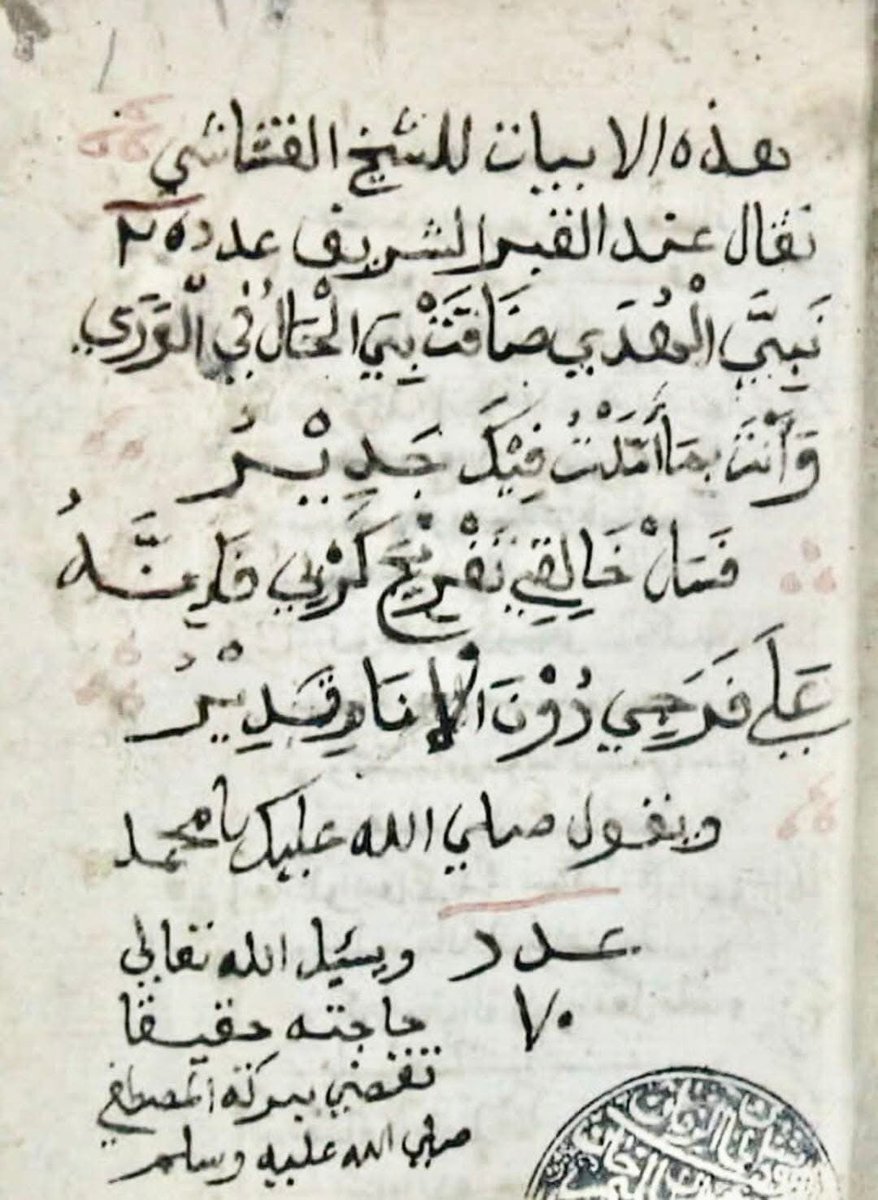 هذه الابيات للشيخ القشاشي
تقال عند القبر الشريف عدد ٢٥
نَبِيَّ الْهُدَي ضَاقَتْ بِيَ الْحَالُ فِي الْوَرَي
وَأَنْتَ بِمَا أَمَّلْتُ فِيْكَ جَدِيْرُ
فَسَلْ خَالِقِي تَفْرِيْجَ كَرْبِي فَإِنَّهُ
عَلَي فَرَجِي دُوْنَ الْاَنَامِ قَدِيْرُ
ويقول صلي الله عليك يا محمد
عدد ٧٠
ويسئل الله تعالي
حاجته حقيقا
تقضي ببركة المصطفي
صلي الله عليه وسلم